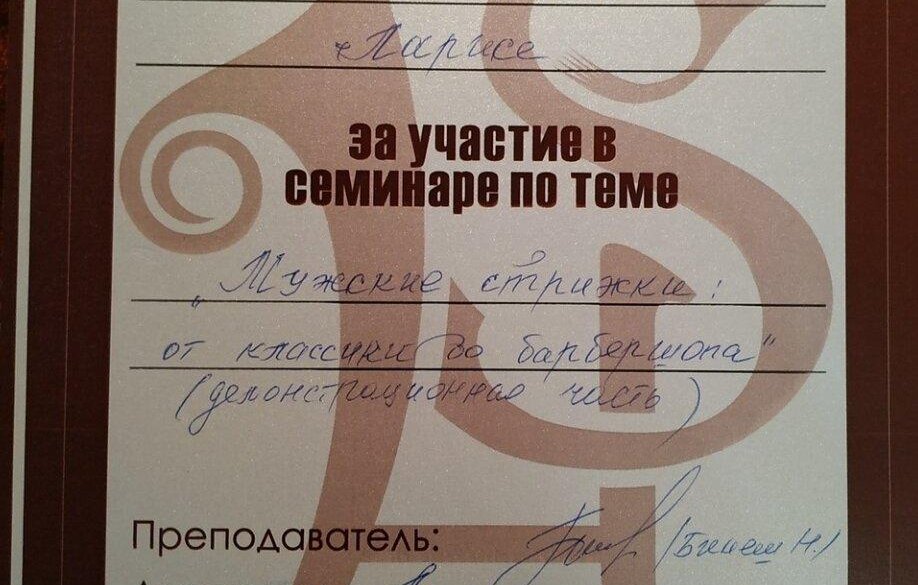 Ларисе
за участие в
семинаре по теме
"Мужские стрижки:
от классики до барбершопа"
(демонстрационная часть)
Преподаватель: